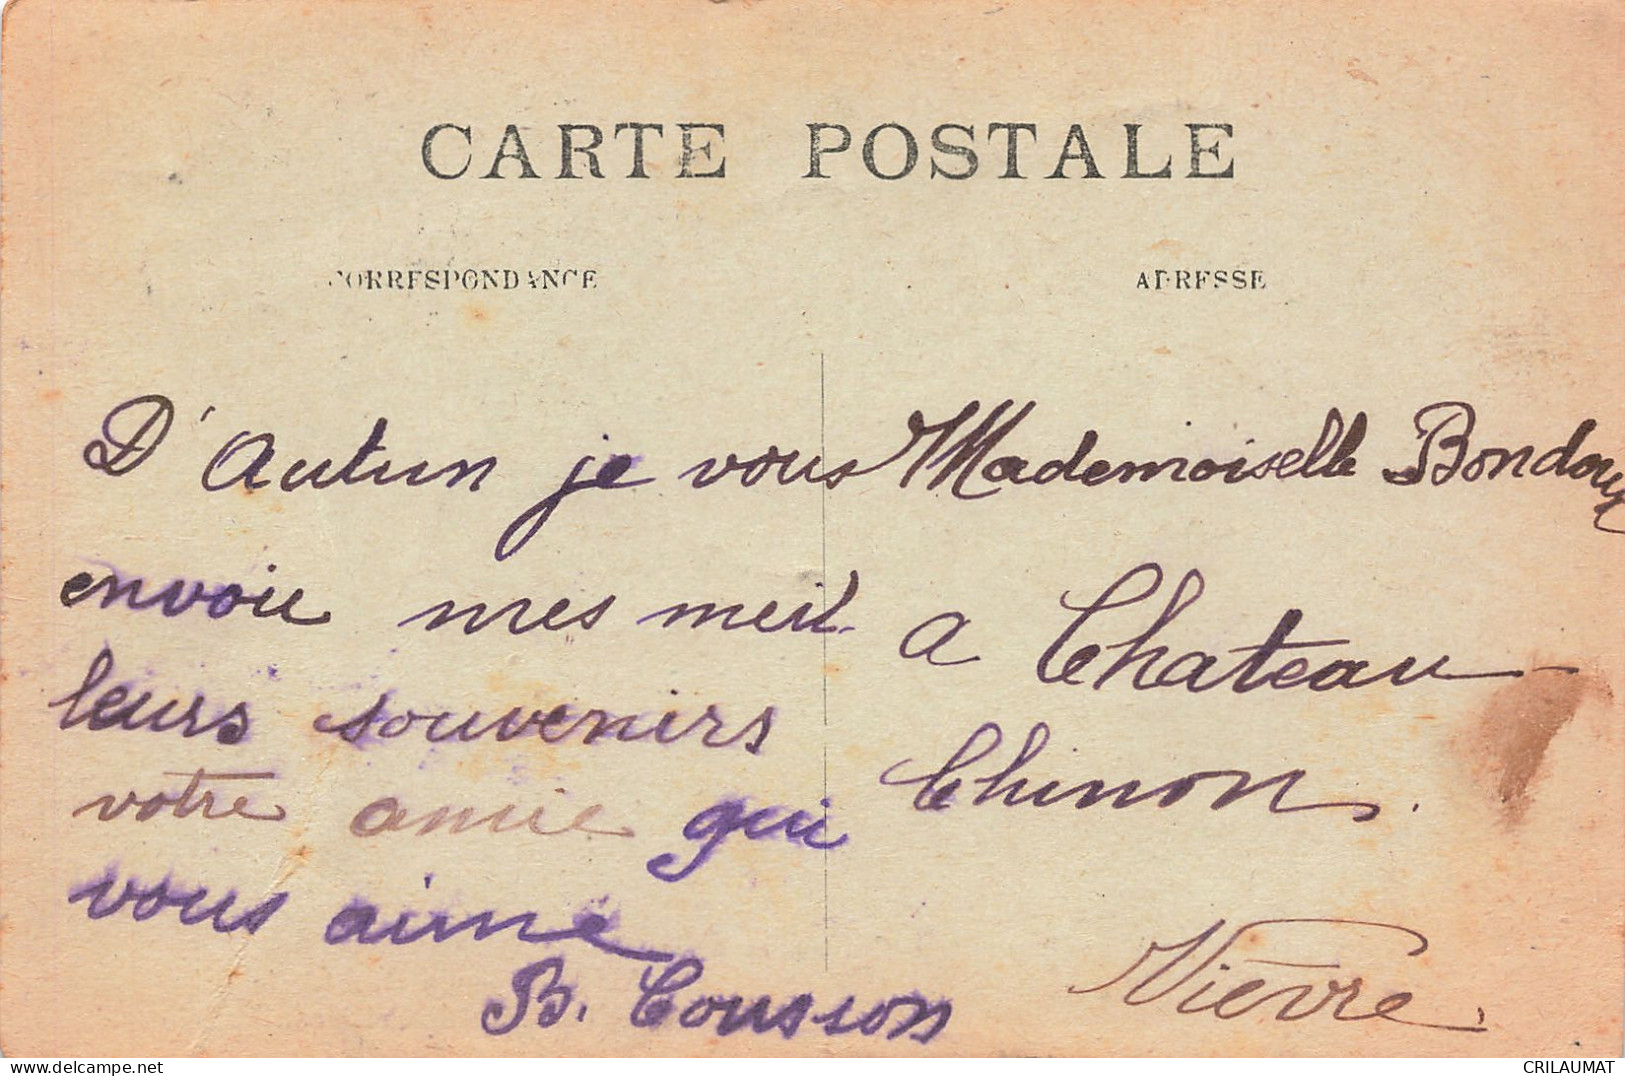 CARTE POSTALE
CORRESPONDANCE
ADRESSE
D'Autun je vous
envoie mes meil-
leurs souvenirs
votre amie qui
vous aime
B. Cousson
Mademoiselle Bondoux
a Chateau
Chinon.
Nièvre.
CRILAUMAT